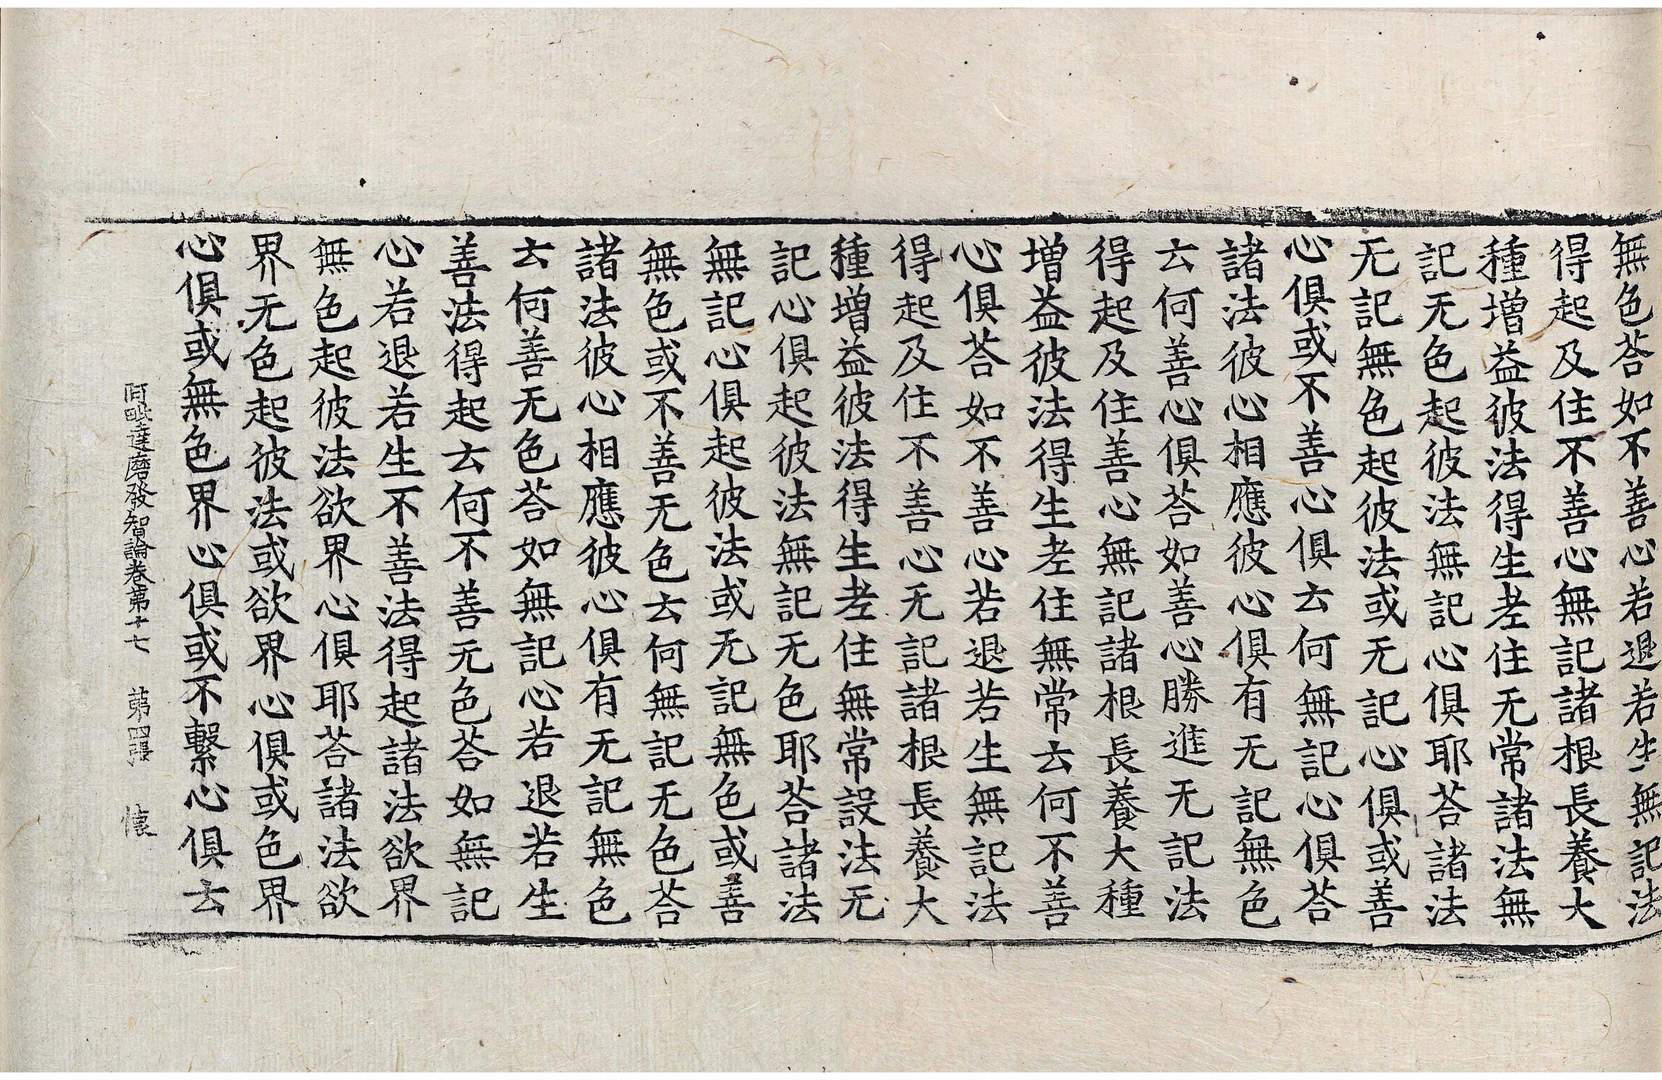 無色荅如不善心若退若生無記法
得起及住不善心無記諸根長養大
種增益彼法得生老住无常諸法無
記无色起彼法無記心俱耶荅諸法
无記無色起彼法或无記心俱或善
心俱或不善心俱云何無記心俱荅
諸法彼心相應彼心俱有无記無色
云何善心俱荅如善心勝進无記法
得起及住善心無記諸根長養大種
增益彼法得生老住無常云何不善
心俱荅如不善心若退若生無記法
得起及住不善心无記諸根長養大
種增益彼法得生老住無常設法无
記心俱起彼法無記无色耶荅諸法
無記心俱起彼法或无記無色或善
無色或不善无色云何無記无色荅
諸法彼心相應彼心俱有无記無色
云何善无色荅如無記心若退若生
善法得起云何不善无色荅如無記
心若退若生不善法得起諸法欲界
無色起彼法欲界心俱耶荅諸法欲
界无色起彼法或欲界心俱或色界
心俱或無色界心俱或不繫心俱云
阿毗達磨發智論卷第十七 第四張 懷